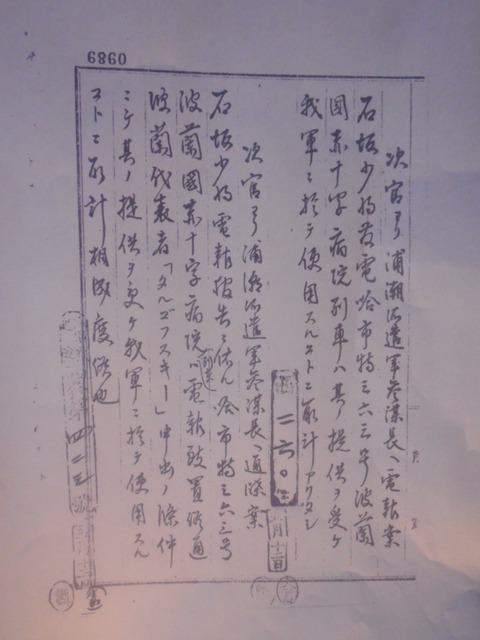 次官ヨリ浦潮派遣軍参謀長ヘ電報案
石坂少将発電哈市特三六三号波蘭
国赤十字病院列車ハ其ノ提供ヲ受ケ
我軍ニ於テ使用スルコトニ取計アリタシ
二六〇
月十三日
次官ヨリ浦潮派遣軍参謀長ヘ通牒案
石坂少将電報報告ニ係ル哈市特三六三号
波蘭國赤十字病院列車ハ電報致置候通
波蘭代表者「タルゴフスキー」申出ノ條件
ニテ其ノ提供ヲ受ケ我軍ニ於テ使用スル
コトニ取計相成度候也
四二三
0989